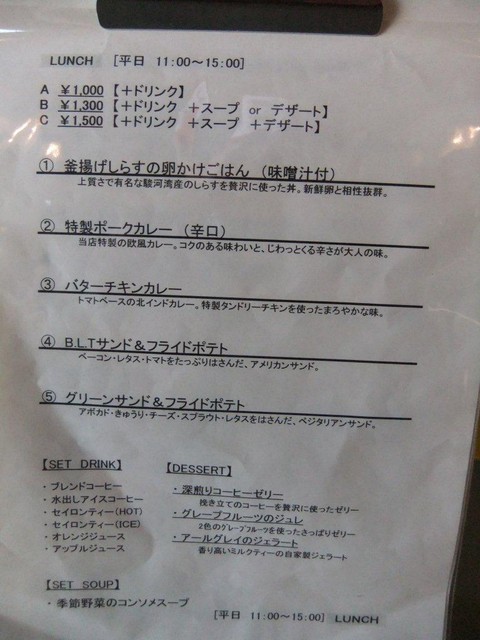 LUNCH [平日 11:00～15:00]
A ￥1,000 【＋ドリンク】
B ￥1,300 【＋ドリンク ＋スープ or デザート】
C ￥1,500 【＋ドリンク ＋スープ ＋デザート】
① 釜揚げしらすの卵かけごはん （味噌汁付）
上質さで有名な駿河湾産のしらすを贅沢に使った丼。新鮮卵と相性抜群。
② 特製ポークカレー （辛口）
当店特製の欧風カレー。コクのある味わいと、じわっとくる辛さが大人の味。
③ バターチキンカレー
トマトベースの北インドカレー。特製タンドリーチキンを使ったまろやかな味。
④ B.L.Tサンド＆フライドポテト
ベーコン・レタス・トマトをたっぷりはさんだ、アメリカンサンド。
⑤ グリーンサンド＆フライドポテト
アボカド・きゅうり・チーズ・スプラウト・レタスをはさんだ、ベジタリアンサンド。
【SET DRINK】
・ブレンドコーヒー
・水出しアイスコーヒー
・セイロンティー(HOT)
・セイロンティー(ICE)
・オレンジジュース
・アップルジュース
【DESSERT】
・深煎りコーヒーゼリー
挽き立てのコーヒーを贅沢に使ったゼリー
・グレープフルーツのジュレ
2色のグレープフルーツを使ったさっぱりゼリー
・アールグレイのジェラート
香り高いミルクティーの自家製ジェラート
【SET SOUP】
・季節野菜のコンソメスープ
[平日 11:00～15:00] LUNCH